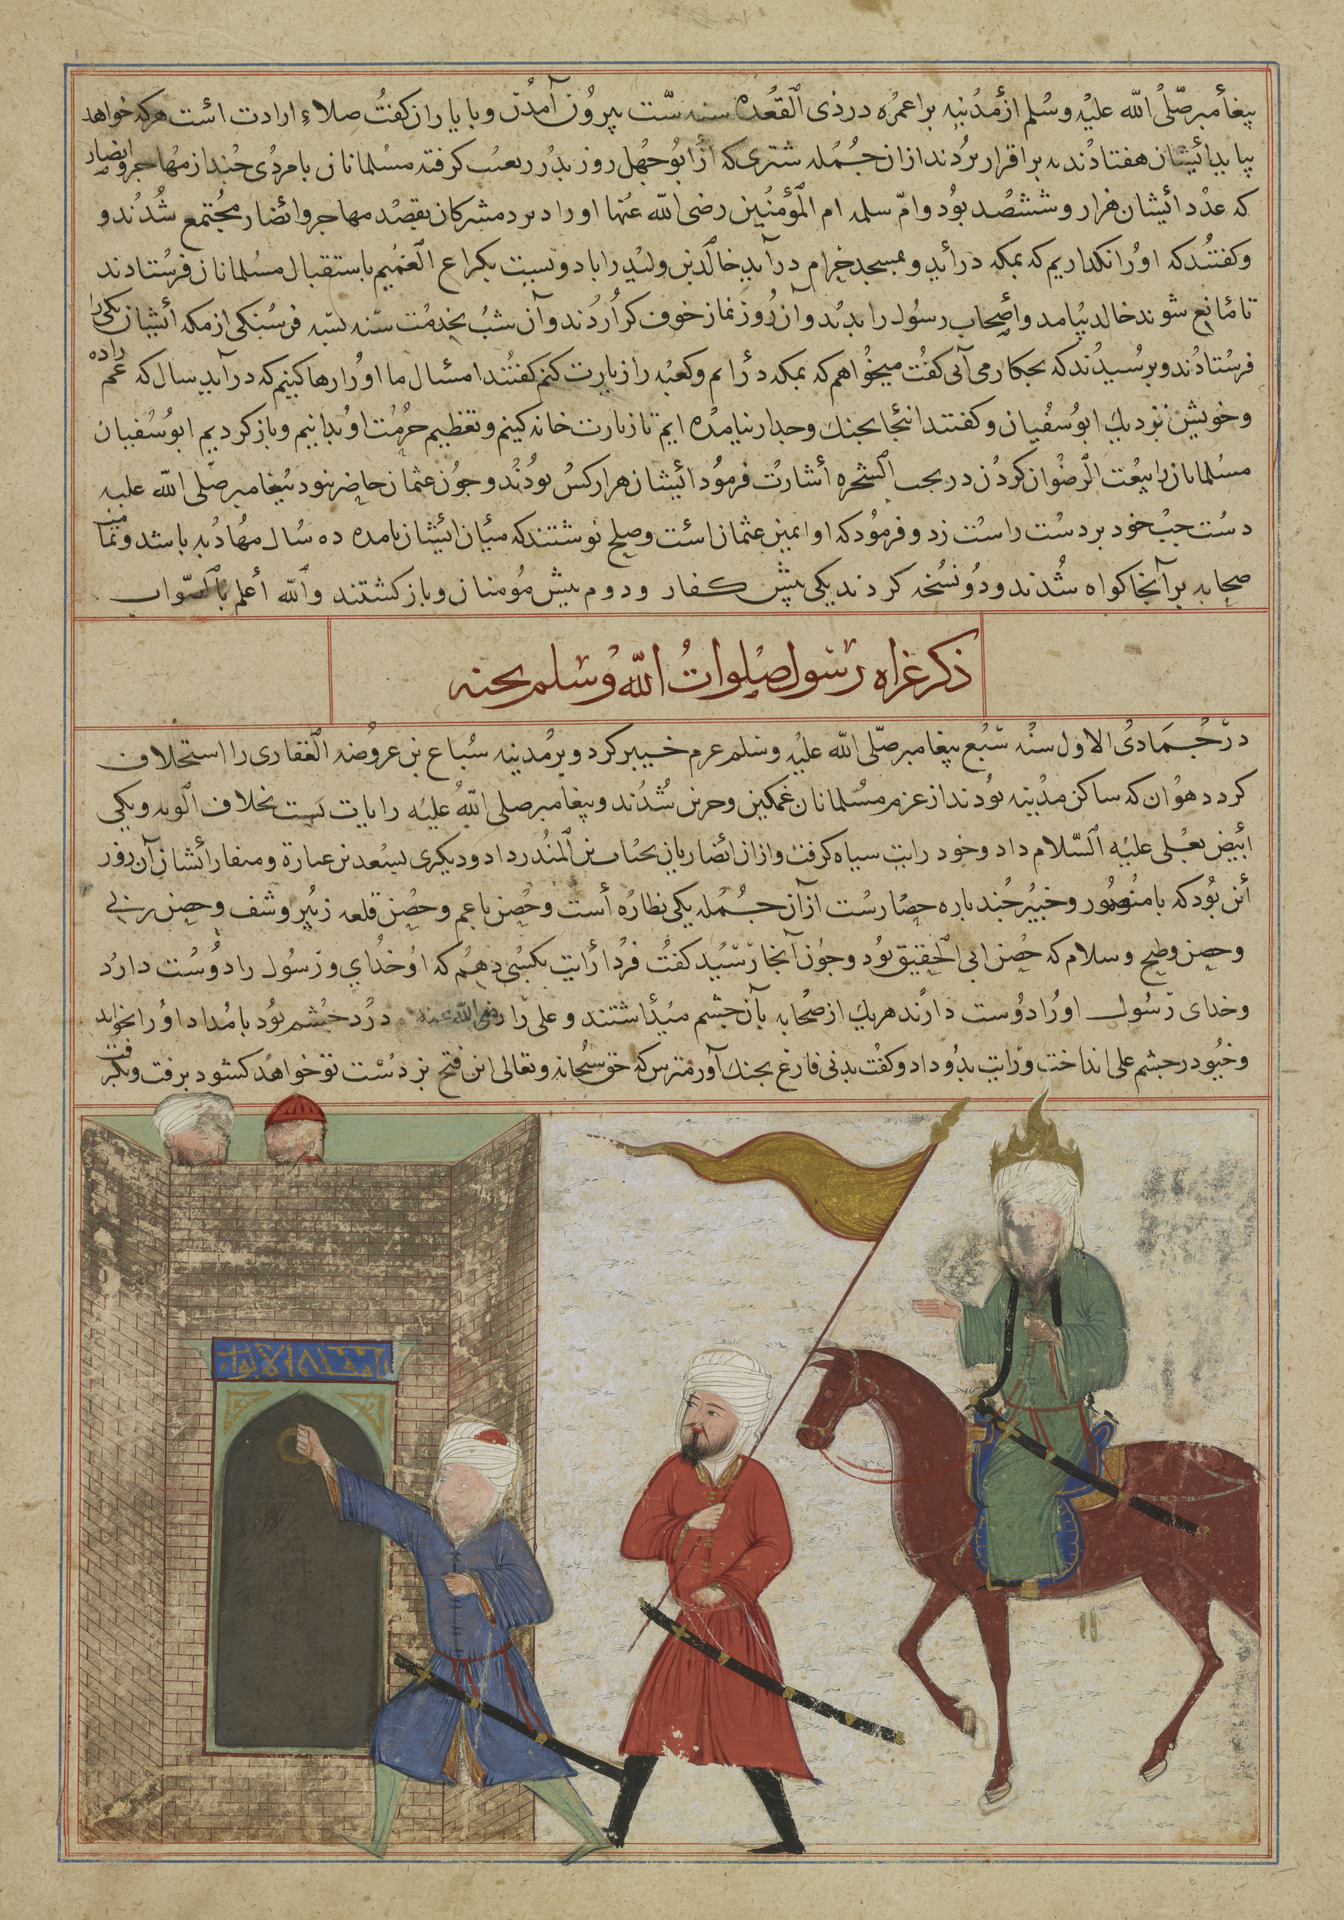 پیغامبر صلی الله علیه وسلم از مدینه بر اعمره در ذی القعده سنه ست بیرون آمدن و با یاران کفت صلاء ارادت است هرکه خواهد
بیاید ائیشان هفتاد بدنه بر اقرار بردند ازان جمله شتری که از ابوجهل روز بدر بعیب کرفته مسلمانان با مردی چند از مهاجر و انصار
که عدد ائیشان هزار و ششصد بود و ام سلمه ام المؤمنین رضی الله عنها او را دبرد مشرکان بقصد مهاجر و انصار مجتمع شدند و
و کفتند که او را نکذاریم که بمکه درآید و بمسجد حرام درآید خالد بن ولید را با دویست بکراع الغمیم باستقبال مسلمانان فرستادند
تا مانع شوند خالد بیامد و اصحاب رسول را بدید و آن روز نماز خوف کراردند و آن شب بخدمت فرسنکی از مکه ائیشان یکی را
فرستادند و برسیدند که بحکار می آئی کفت میخواهم که بمکه درایم و کعبه را زیارت کنم کفتند امسال ما او را رها کنیم که درآید سال که
و خویش نزدیک ابوسفیان و کفتند انجا بجنک و جدار نیامده ایم تا زیارت خانه کنیم و تعظیم حرمت او بدانیم و باز کردیم ابوسفیان
مسلمانان را بیعت الرضوان کردن در تحت الشجره اشارت فرمود ائیشان هزار کس بودند و جون عثمان حاضر نبود پیغامبر صلی الله علیه
دست جب خود بر دست راست زد و فرمود که او امین عثمان است و صلح نوشتند که میان ائیشان تا مده ده سال مهادنه باشد و
صحابه بر آنجا کواه شدند و دو نسخه کردند یکی پیش کفار و دوم پیش مومنان و باز کشتند والله أعلم بالصواب
ذکر غزاه رسول صلوات الله وسلم بحنه
در جمادی الاول سنه سبع پیغامبر صلی الله علیه وسلم عزم خیبر کرد و بر مدینه سباع بن عروضه الغفاری را استخلاف
کرد هوان که ساکن مدینه بودند از عزم مسلمانان غمکین و حزین شدند و پیغامبر صلی الله علیه رایات بست بخلاف الویه و یکی
ابیض بعلی علیه السلام داد و خود رایت سیاه کرفت و از انصاریان بحباب بن المنذر داد و دیکری بسعد بن عبارة و ائشان آن روز
أئن بود که یا منصور و خیبر چند باره حصارست از آن جمله یکی نطاره است و حصن باعم و حصن قلعه زبیر و شف و حصن
و حصن وطیح و سلام که حصن ابی الحقیق بود و جون آنجا رسید کفت فردا رایت بکسی دهم که او خدای و رسول را دوست دارد
و خدای رسول او را دوست دارند هر یک از صحابه بآن جشم میداشتند و علی را رضی الله عنه درد جشم بود بامداد او را بخواند
و خیو در جشم علی انداخت و رایت بدو داد و کفت بدنی فارغ بجنک آور مترس که حق سبحانه و تعالی این فتح بر دست تو خواهد کشود برفت و
یا مفتح الابواب